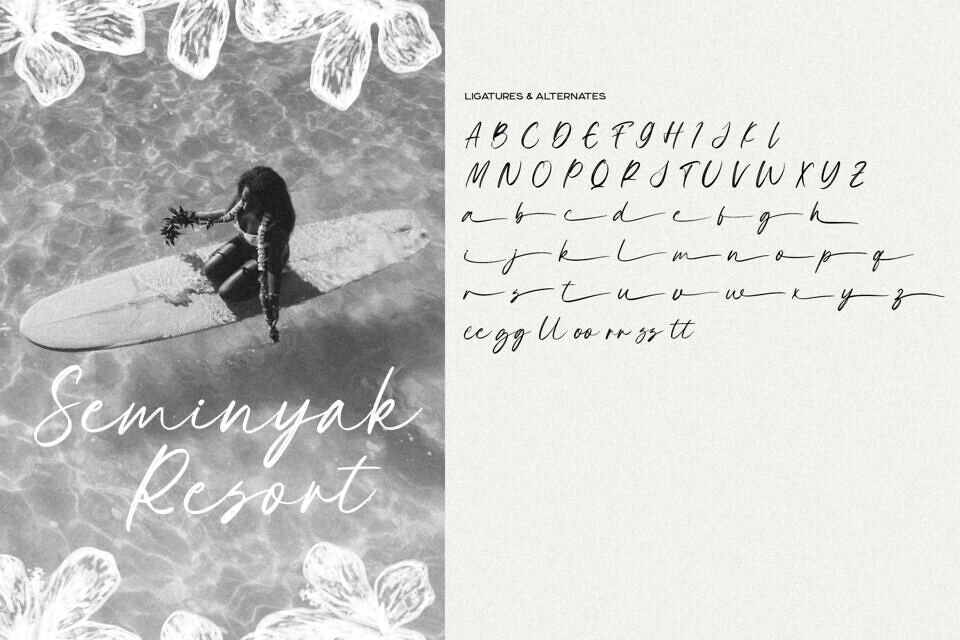 Seminyak
Resort
LIGATURES & ALTERNATES
A B C D E F G H I J K L
M N O P Q R S T U V W X Y Z
a b c d e f g h
i j k l m n o p q
r s t u v w x y z
ee gg ll oo rr ss tt